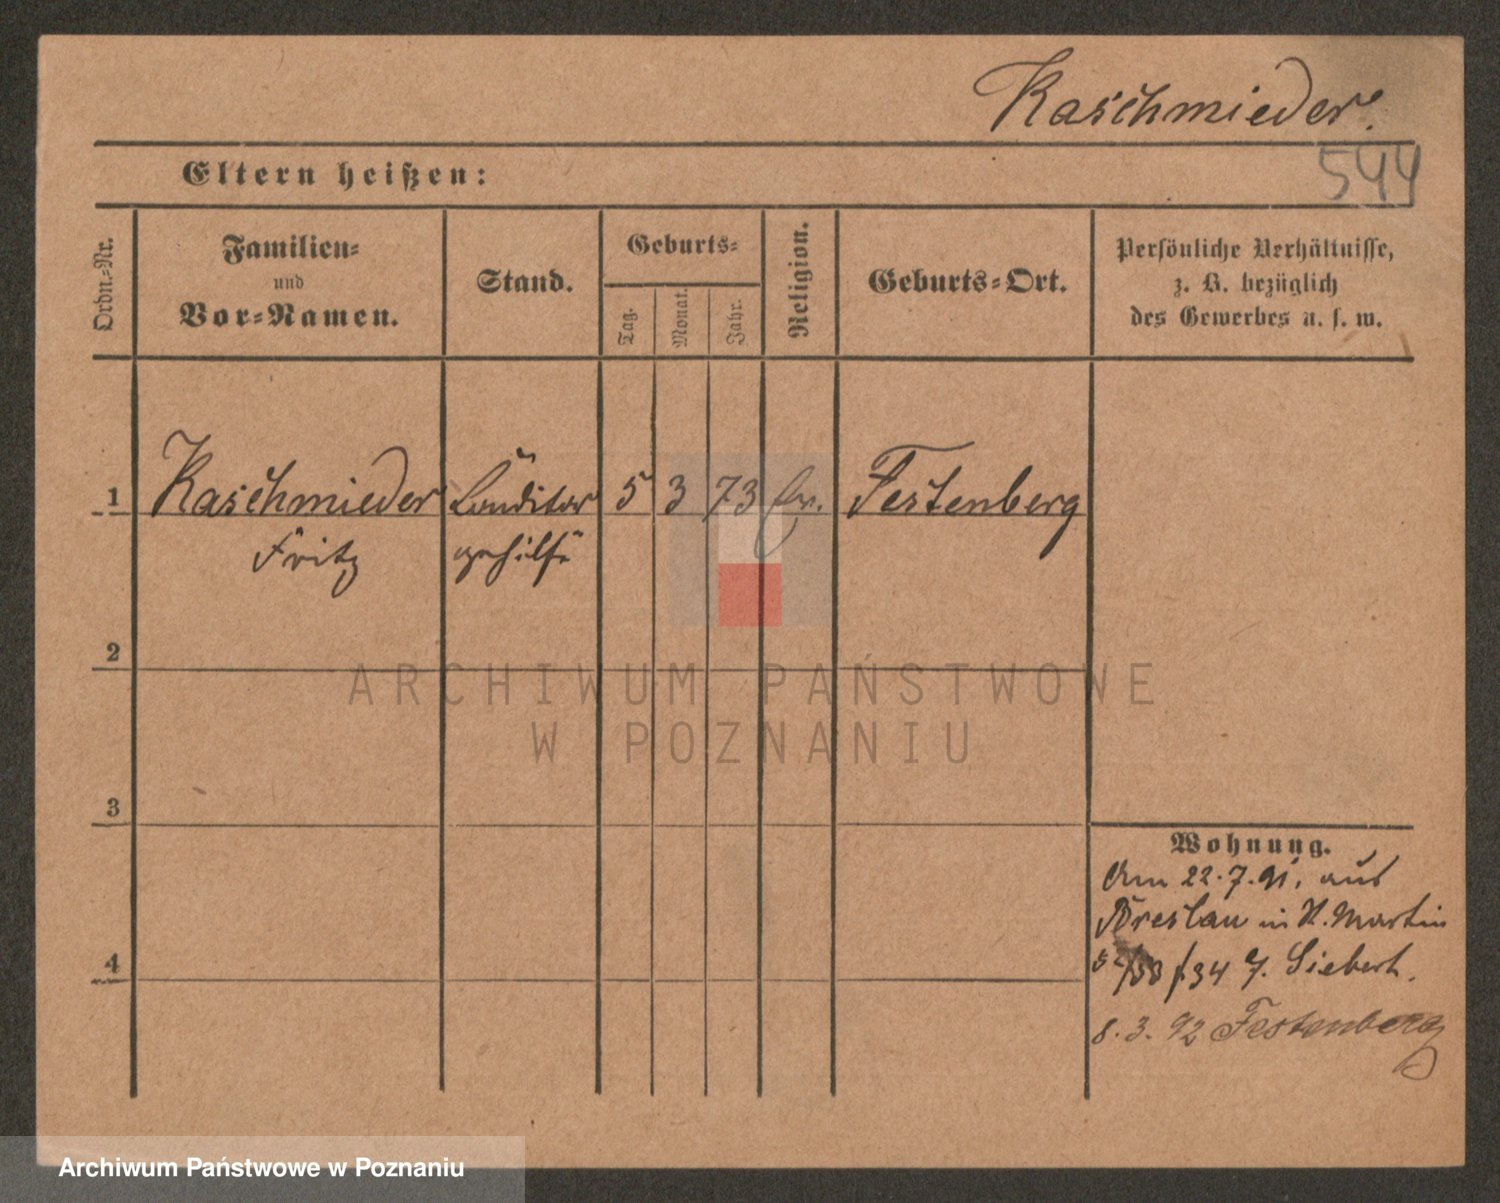 Kaschmieder.
544
Eltern heißen:
Ordn.-Nr.
Familien-
und
Vor-Namen.
Stand.
Geburts-
Tag.
Monat.
Jahr.
Religion.
Geburts-Ort.
Persönliche Verhältnisse,
z. B. bezüglich
des Gewerbes u. s. w.
1 Kaschmieder Conditor 5 3 73 Ev. Festenberg
Fritz gehilfe
2
ARCHIWUM PAŃSTWOWE
W POZNANIU
3
Wohnung.
Am 22.7.91. aus
Breslau in St. Martin
4
52/53 f 34 Siebert.
8.3.92 Festenberg
Archiwum Państwowe w Poznaniu